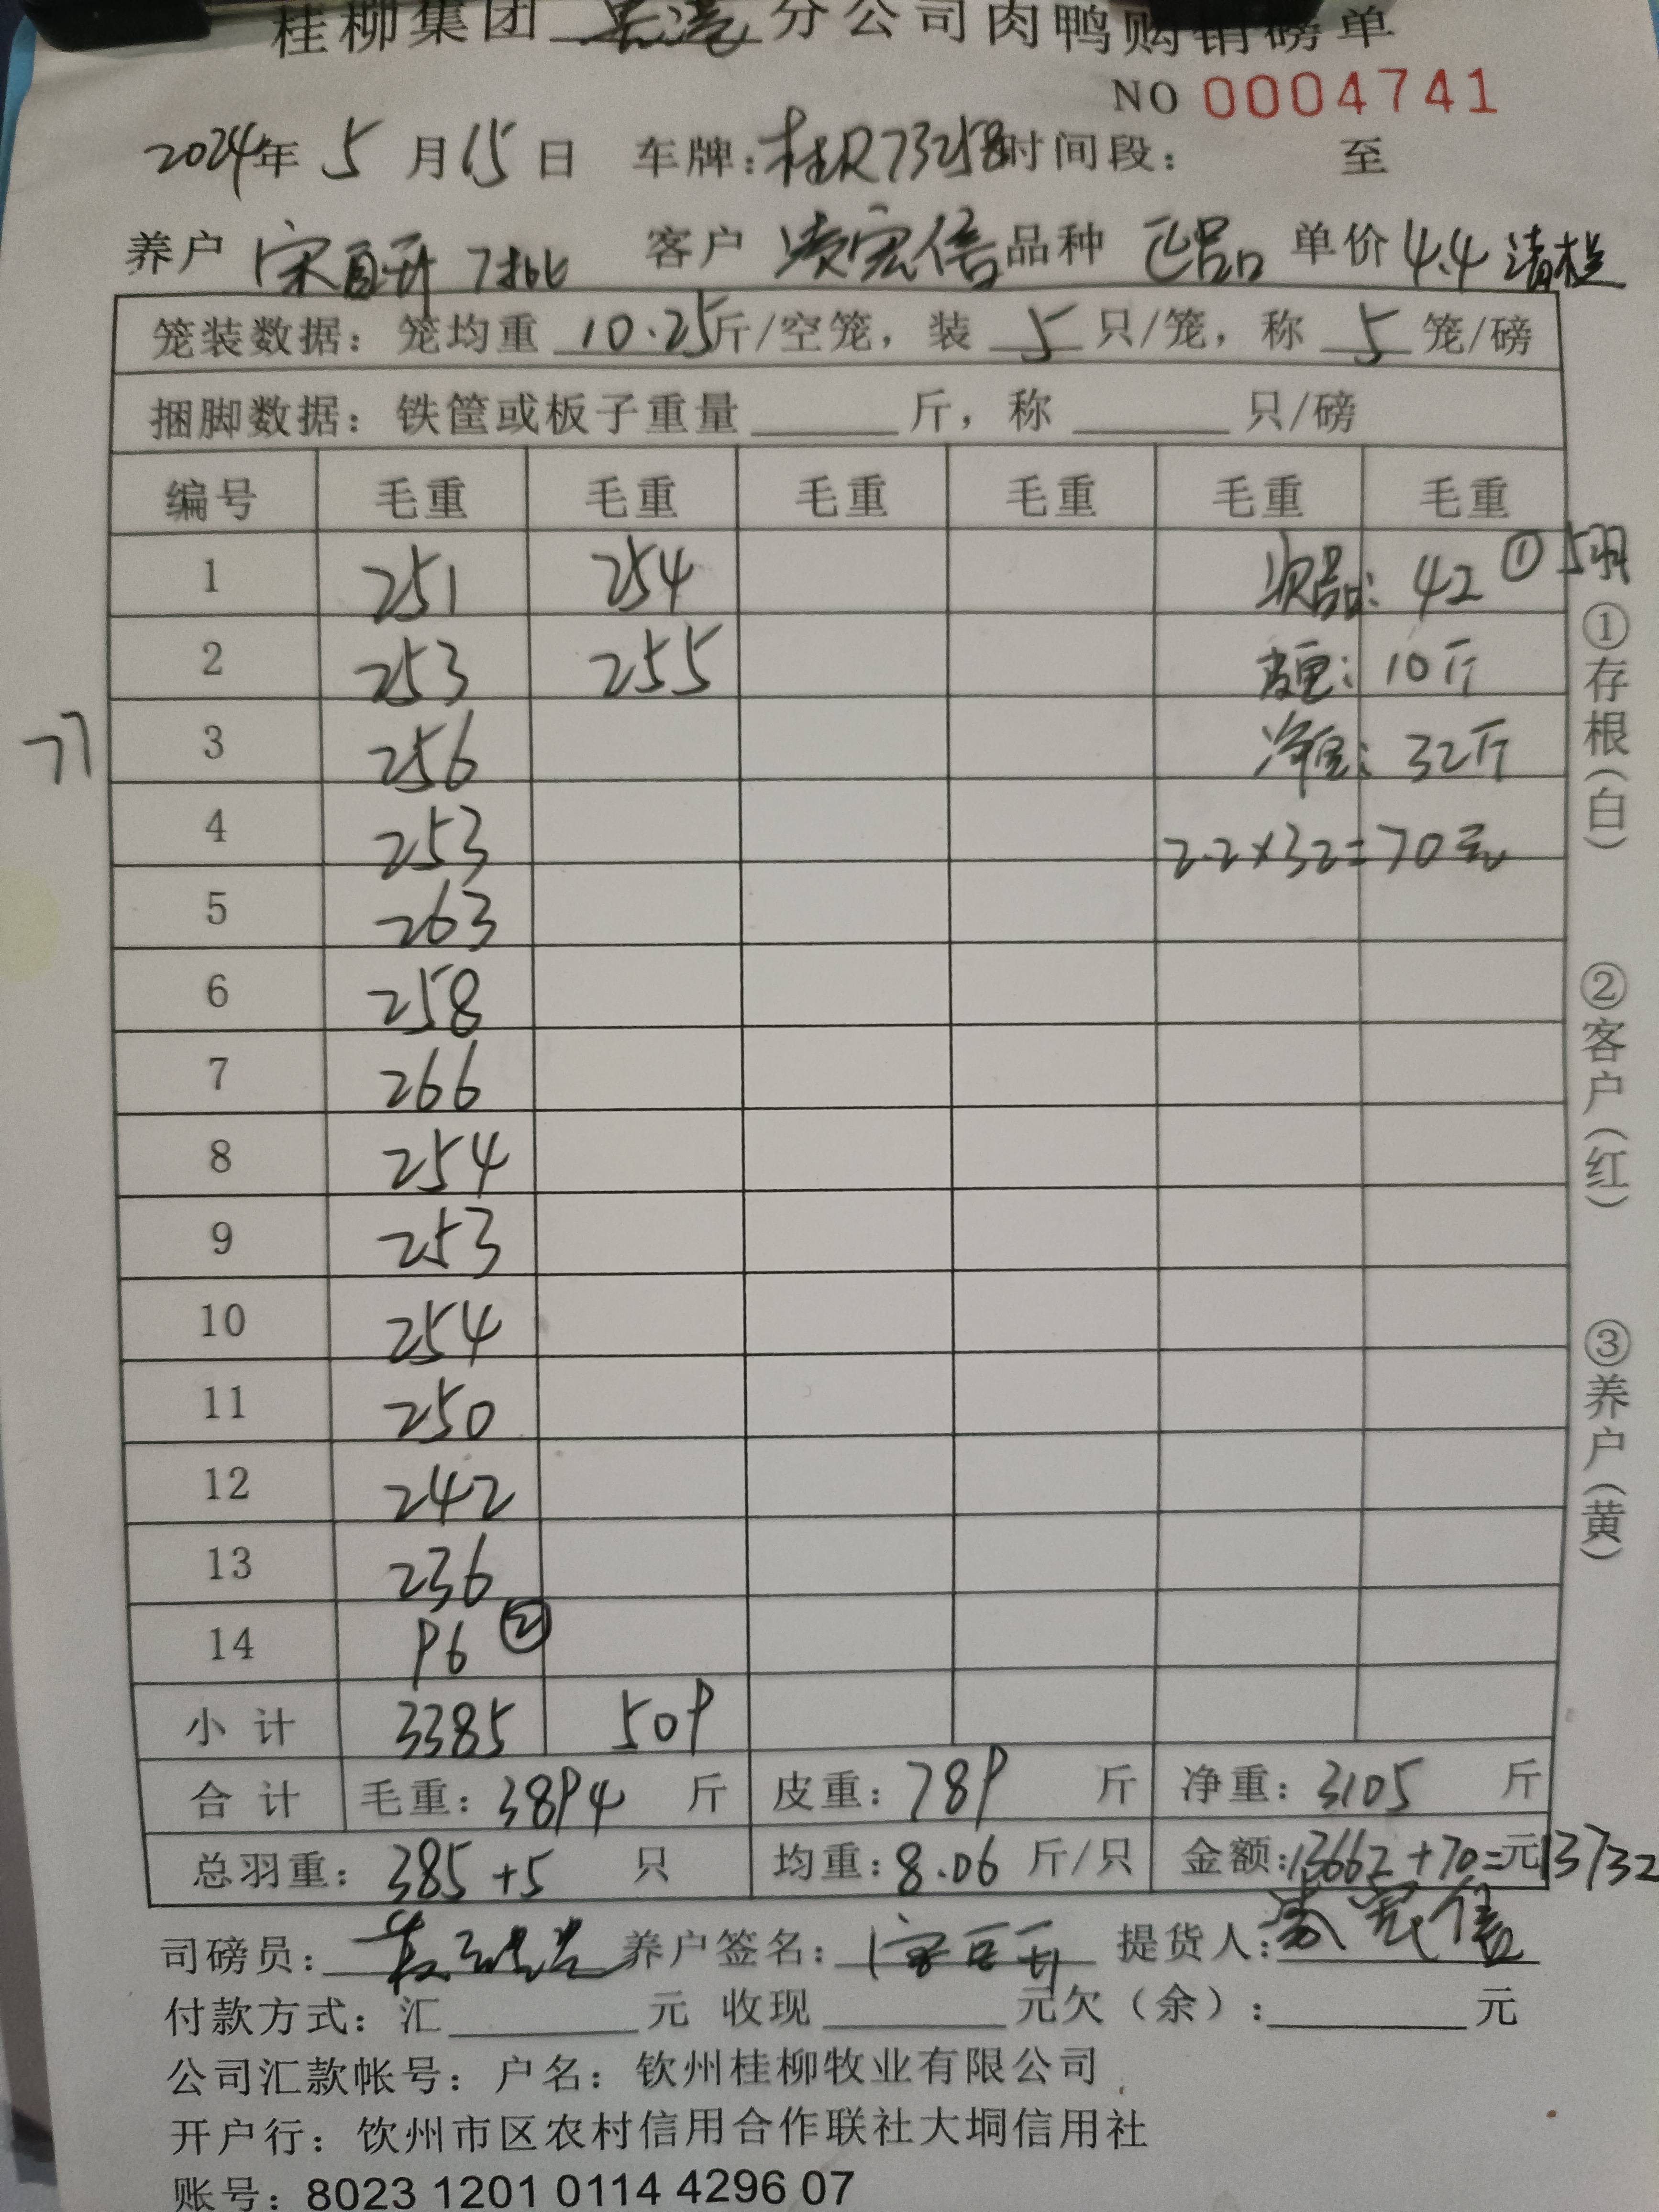 桂柳集团 分公司肉鸭购销磅单
NO 0004741
2024年 5 月 15 日 车牌:桂R73258 时间段: 至
养户 宋百升 7批 客户 凌宏信 品种 正品 单价 4.4 清栏
笼装数据: 笼均重 10.25 斤/空笼, 装 5 只/笼, 称 5 笼/磅
捆脚数据: 铁筐或板子重量 斤, 称 只/磅
编号 毛重 毛重 毛重 毛重 毛重 毛重
1 251 254 次品: 42 ① 5羽
2 253 255 皮重: 10斤
3 256 净重: 32斤
77
4 253 2.2×32=70元
5 263
6 258
7 266
8 254
9 253
10 254
11 250
12 242
13 236
14 96 ②
小计 3385 509
合计 毛重: 3894 斤 皮重: 789 斤 净重: 3105 斤
总羽重: 385+5 只 均重: 8.06 斤/只 金额: 13662+70= 元 13732
①存根(白) ②客户(红) ③养户(黄)
司磅员: 养户签名: 宋百升 提货人: 凌宏信
付款方式: 汇 元 收现 元欠(余): 元
公司汇款帐号: 户名: 钦州桂柳牧业有限公司
开户行: 钦州市区农村信用合作联社大垌信用社
账号: 8023 1201 0114 4296 07